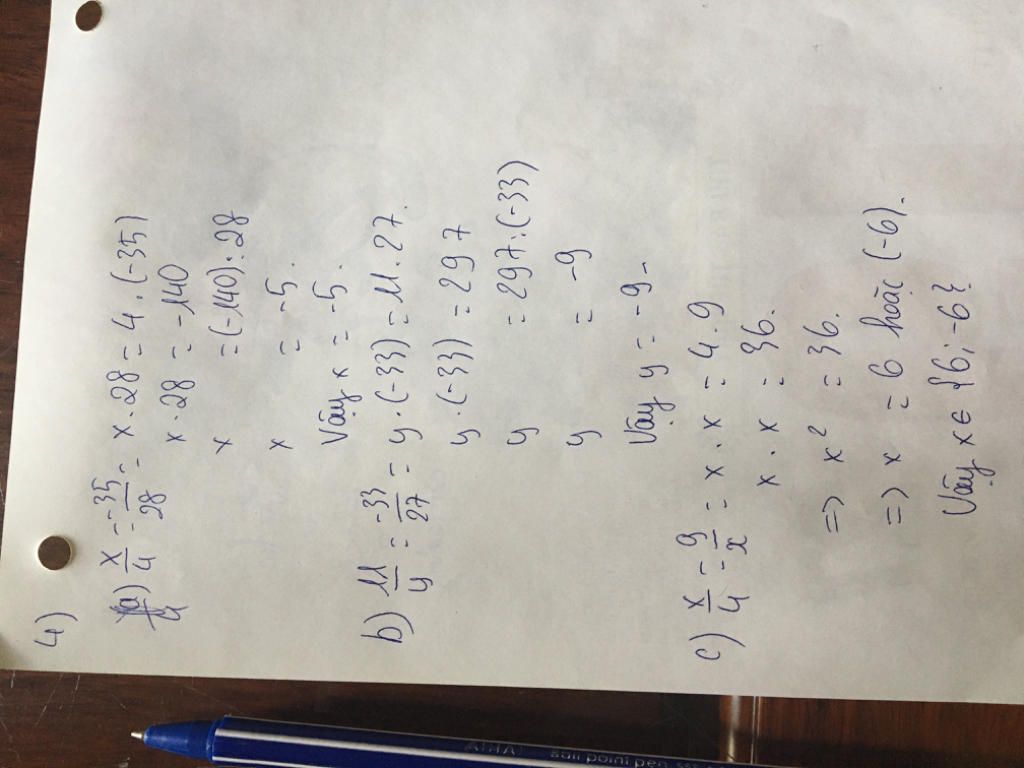 4)
a) x/4 = -35/28 = x.28 = 4.(-35)
x.28 = -140
x = (-140):28
x = -5.
Vậy x = -5.
b) 11/y = -33/27 = y.(-33) = 11.27.
y.(-33) = 297
y = 297:(-33)
y = -9
Vậy y = -9-
c) x/4 = 9/x = x.x = 4.9
x.x = 36.
=> x² = 36.
=> x = 6 hoặc (-6).
Vậy x ∈ {6; -6}
ball point pen